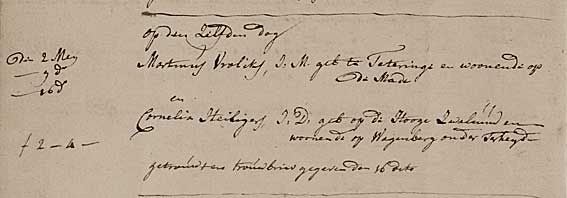 op den Zelfden dag
Den 2 Mey
Martinus Vroliks, J: M. geb te Teteringe en woonende op
— 9 d°
de Made
— 16 d°
en
Cornelia Heiligers, J: D: geb op de Hooge Zwaluwe en
f 2 — 4 —
woonende op Wagenberg onder Terheyde
getrouwt en trouwbrief gegeven den 16 dito